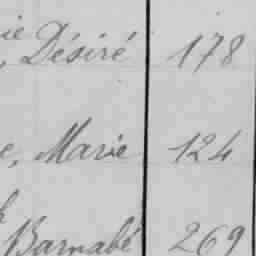 ie
, Désiré 178
e, Marie 124
Barnabé 269